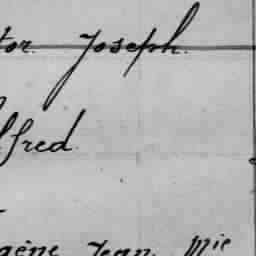 tor Joseph.
lfred
gène Jean Mie